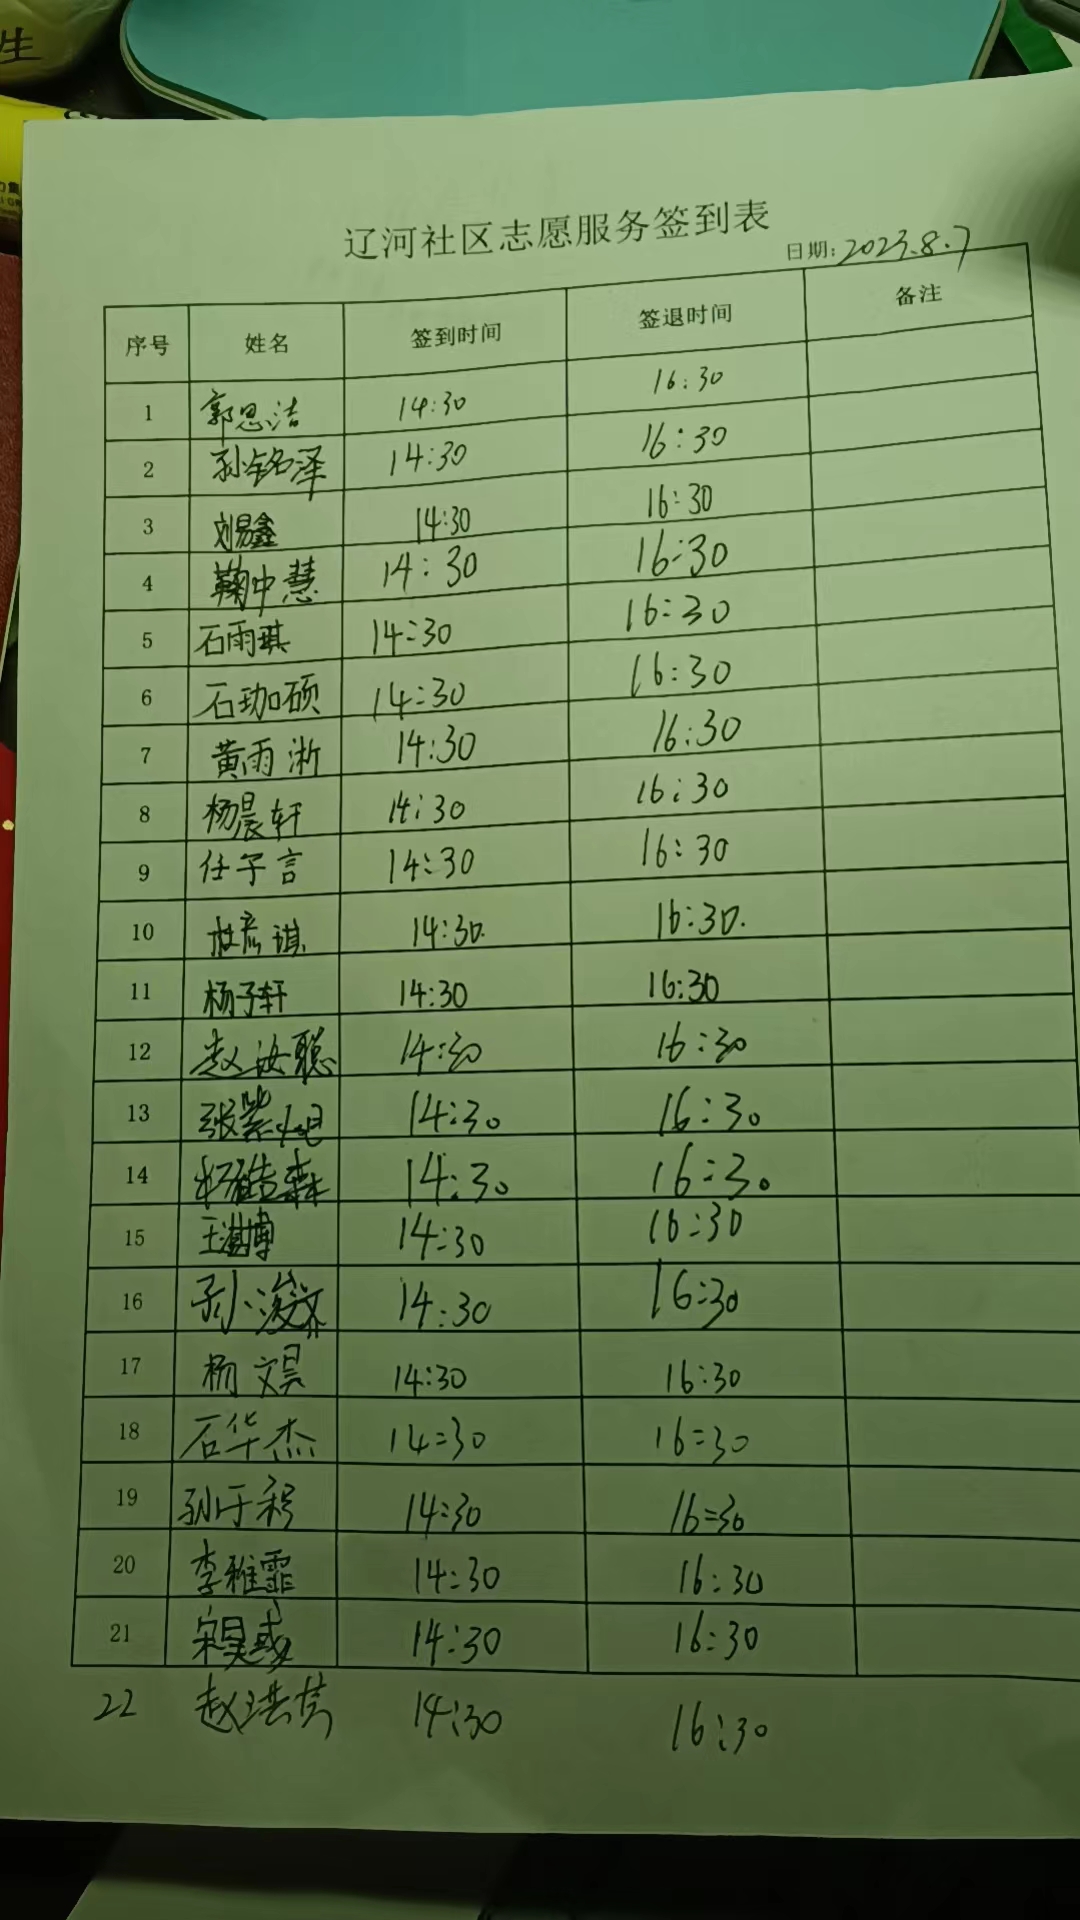 生
辽河社区志愿服务签到表
日期: 2023.8.7
序号 姓名 签到时间 签退时间 备注
1 郭思洁 14:30 16:30
2 孙铭泽 14:30 16:30
3 刘易鑫 14:30 16:30
4 鞠中慧 14:30 16:30
5 石雨琪 14:30 16:30
6 石珈硕 14:30 16:30
7 黄雨浙 14:30 16:30
8 杨晨轩 14:30 16:30
9 任子言 14:30 16:30
10 杜彦琪 14:30. 16:30.
11 杨子轩 14:30 16:30
12 赵汝聪 14:30 16:30
13 张紫 14:30 16:30
14 杨皓森 14:30 16:30
15 王博 14:30 16:30
16 孙浚 14:30 16:30
17 杨文昊 14:30 16:30
18 石华杰 14:30 16:30
19 孙于稀 14:30 16:30
20 李雅霏 14:30 16:30
21 宋昊彧 14:30 16:30
22 赵洪 14:30 16:30